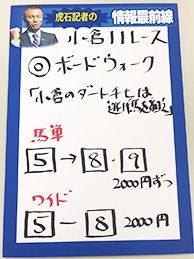 虎石記者の
情報最前線
小倉11レース
◎ボードウォーク
「小倉のダートチ七は
逃げ馬を狙え」
馬単
5→8・9
2000円ずつ
ワイド
5―8 2000円